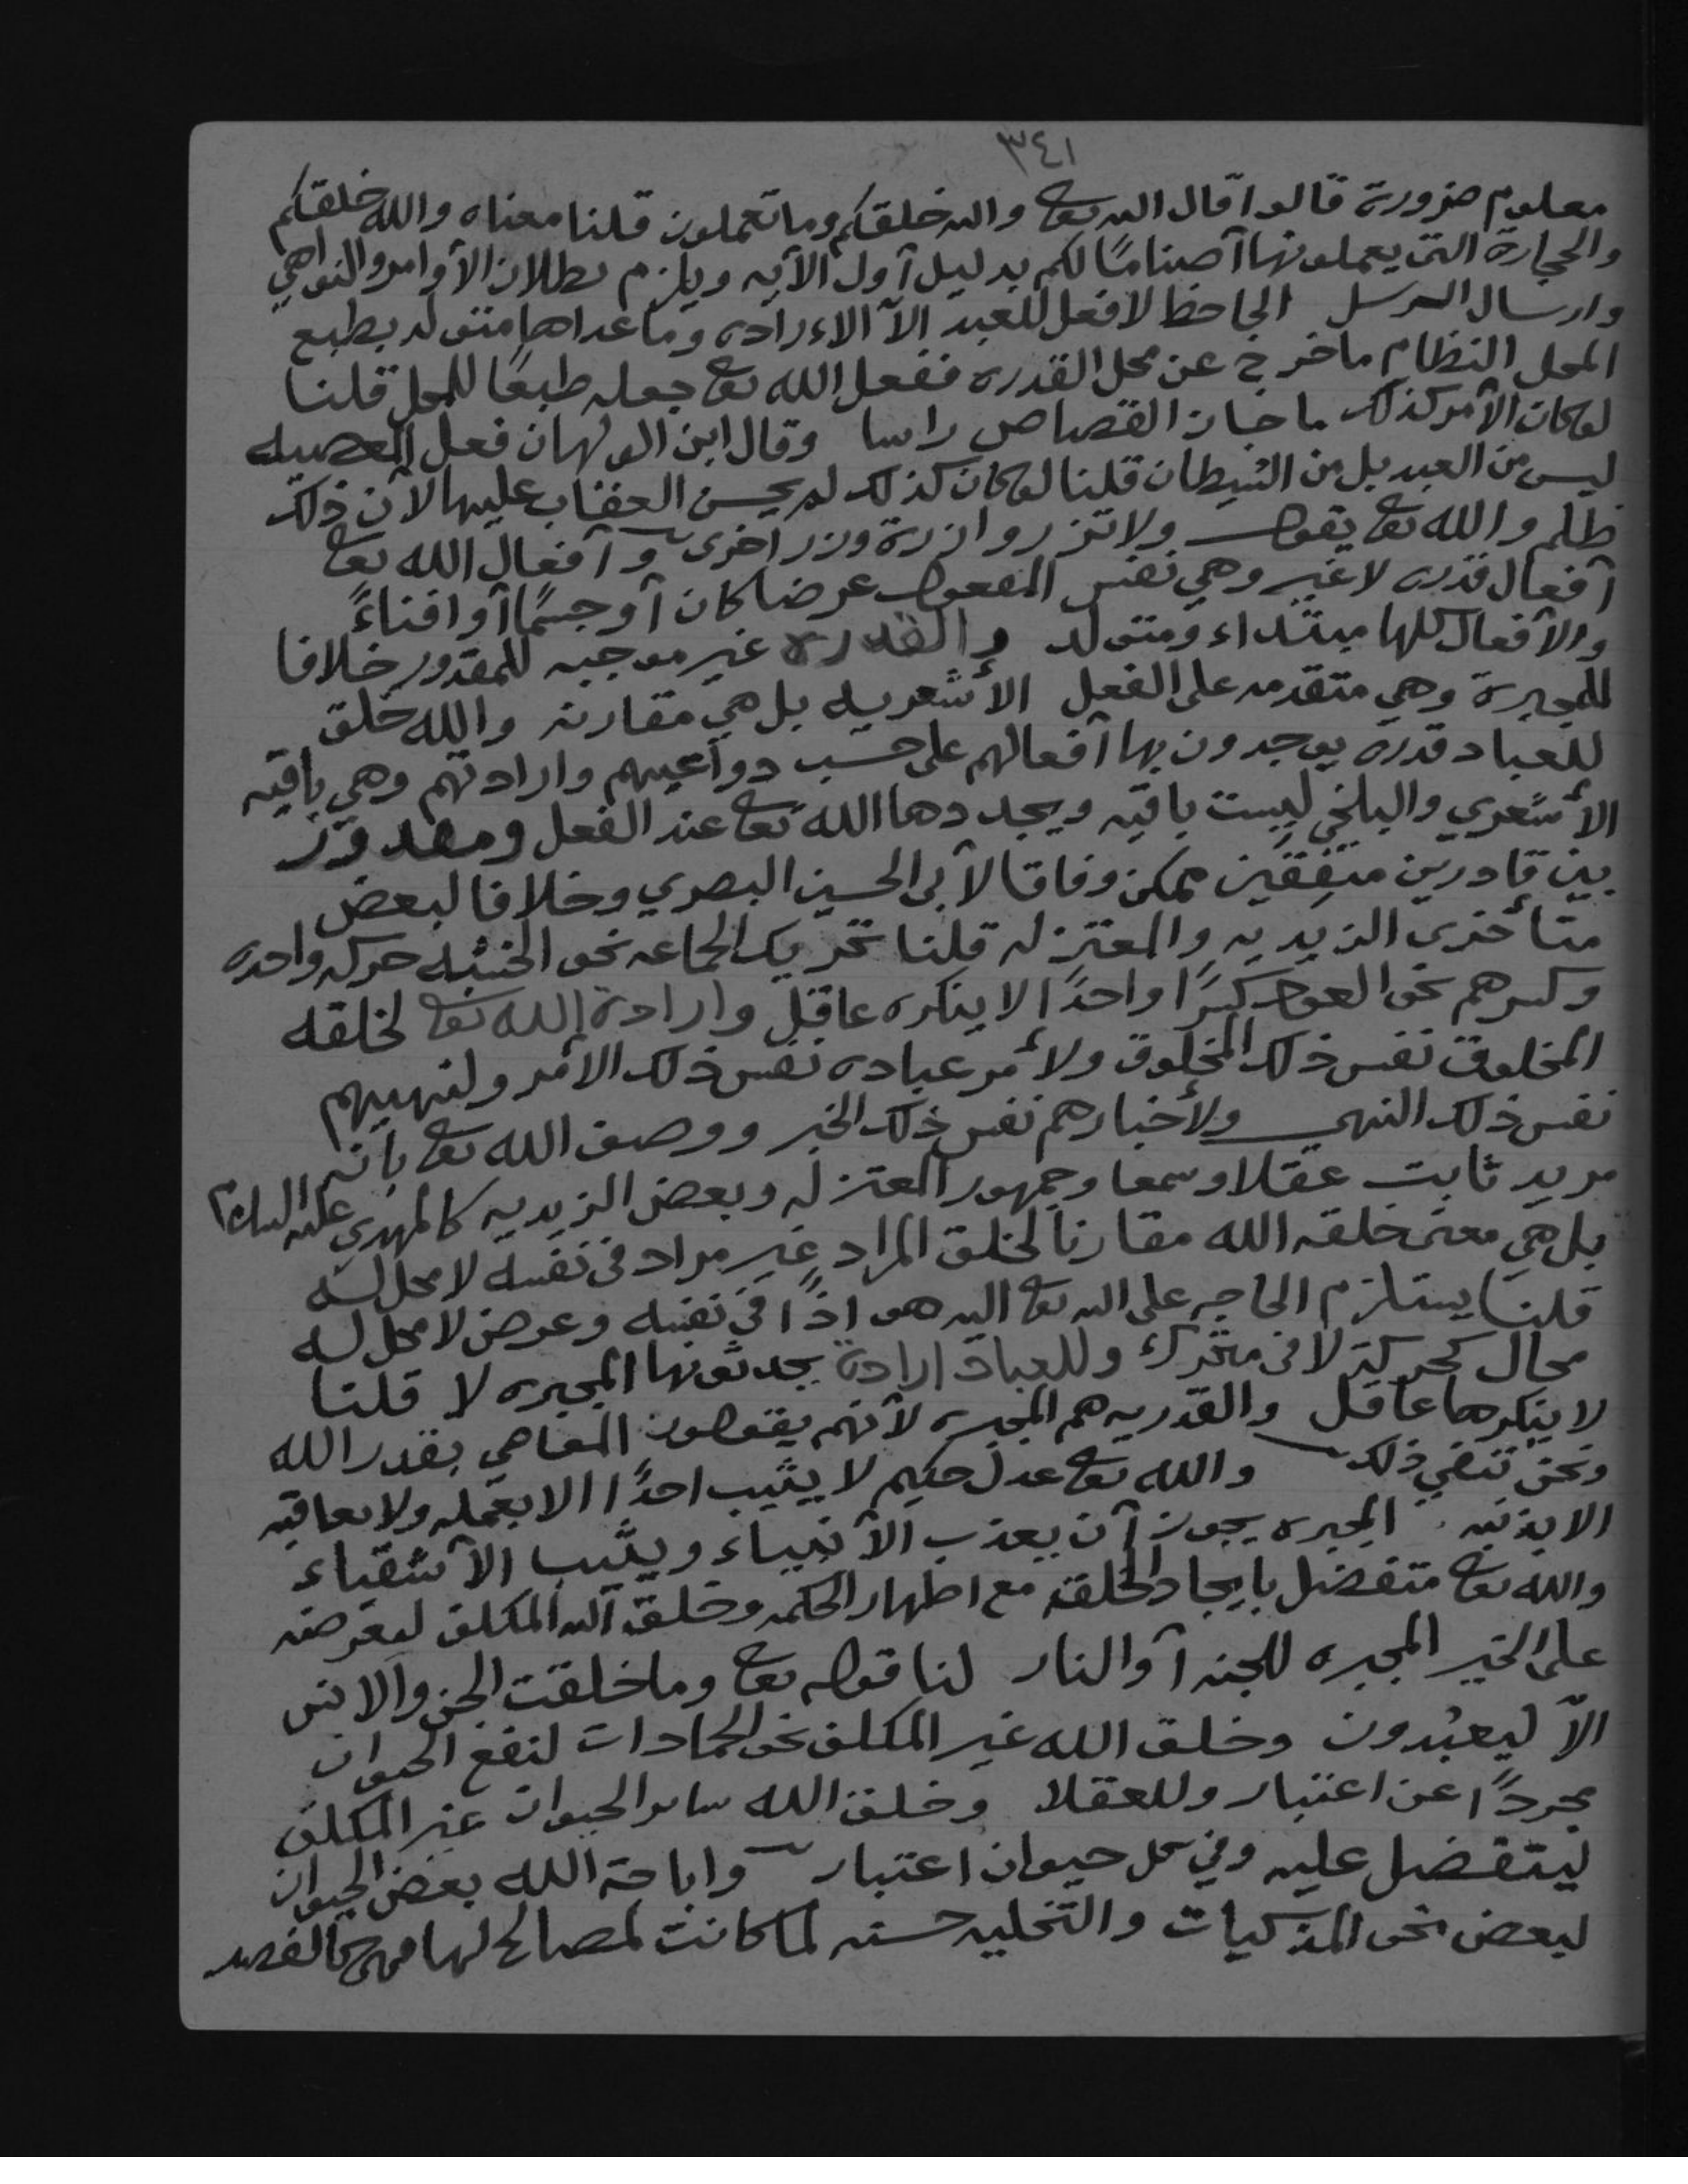 ٣٤١
معلوم ضرورة قالوا قال الله تعا والله خلقكم وما تعملون قلنا معناه والله خلقكم
والحجارة التي يعملونها آصناماً لكم بدليل آول الآيه ويلزم بطلان الآوامر والنواهي
وارسال الرسل الجاحظ لا فعل للعبد الآ الاءراده وما عداها متولد بطبع
المحل النظام ما خرج عن محل القدره ففعل الله تعا جعله طبعًا للمحل قلنا
لو كان الآمر كذلك ما جاز القصاص راسا وقال ابن الولهان فعل المعصيه
ليس من العبد بل من الشيطان قلنا لو كان كذلك لم يحسن العقاب عليها لآن ذلك
ظلم والله تعا يقول ولا تزر وازرة وزر اخرى وآفعال الله تعا
آفعال قدره لا غير وهي نفس المفعول عرضا كان آو جسمًا آو افناءً
والآفعال كلها مبتداء ومتولد والقدره غير موجبه للمقدور خلافا
للمجبرة وهي متقدمه على الفعل الأشعريه بل هي مقارنه والله خلق
للعباد قدرة يوجدون بها آفعالهم على حسب دواعيهم وارادتهم وهي باقيه
الأشعري والبلخي ليست باقيه ويجددها الله تعا عند الفعل ومقدور
بين قادرين متفقين ممكن وفاقا لآبى الحسين البصري وخلافا لبعض
متأخرى الزيديه والمعتزله قلنا تحريك الجماعه نحو الخشبه حركه واحده
وكسرهم نحو العود كسرًا واحدًا لا ينكره عاقل وارادة الله تعا لخلقه
المخلوق نفس ذلك المخلوق ولأمر عباده نفس ذلك الامر ولنهييهم
نفس ذلك النهي ولأخبارهم نفس ذلك الخبر ووصف الله تعا بآنه
مريد ثابت عقلا وسمعا وجمهور المعتزله وبعض الزيديه كالمهدي عليه السلام
بل هي معنى خلقه الله مقارنا لخلق المراد غير مراد في نفسه لا محل له
قلنا يستلزم الحاجه على الله تعا اليه هو اذًا في نفسه وعرض لا محل له
محال كحركة لا في متحرك وللعباد ارادة يحدثونها المجبره لا قلنا
لا ينكرها عاقل والقدريه هم المجبره لآنهم يقولون المعاصي بقدر الله
ونحن ننفي ذلك والله تعا عدل حكيم لا يثيب احدًا الا بعمله ولا يعاقبه
الا بذنبه المجبره يجوز آن يعذب الآنبياء ويثيب الآشقياء
والله تعا متفضل بايجاد الخلقة مع اظهار الحكمه وخلق الله المكلف ليعرضه
على الخير المجبره للجنه آو النار لنا قوله تعا وما خلقت الجن والانس
الآ ليعبدون وخلق الله غير المكلف نحو الجمادات لنفع الحيوان
مجردًا عن اعتبار وللعقلا وخلق الله سائر الحيوان غير المكلف
ليتفضل عليه وفي كل حيوان اعتبار واباحة الله بعض الحيوان
لبعض نحو المذكيات والتخليه حسنه لما كانت لمصالح لها فهي كالفصد